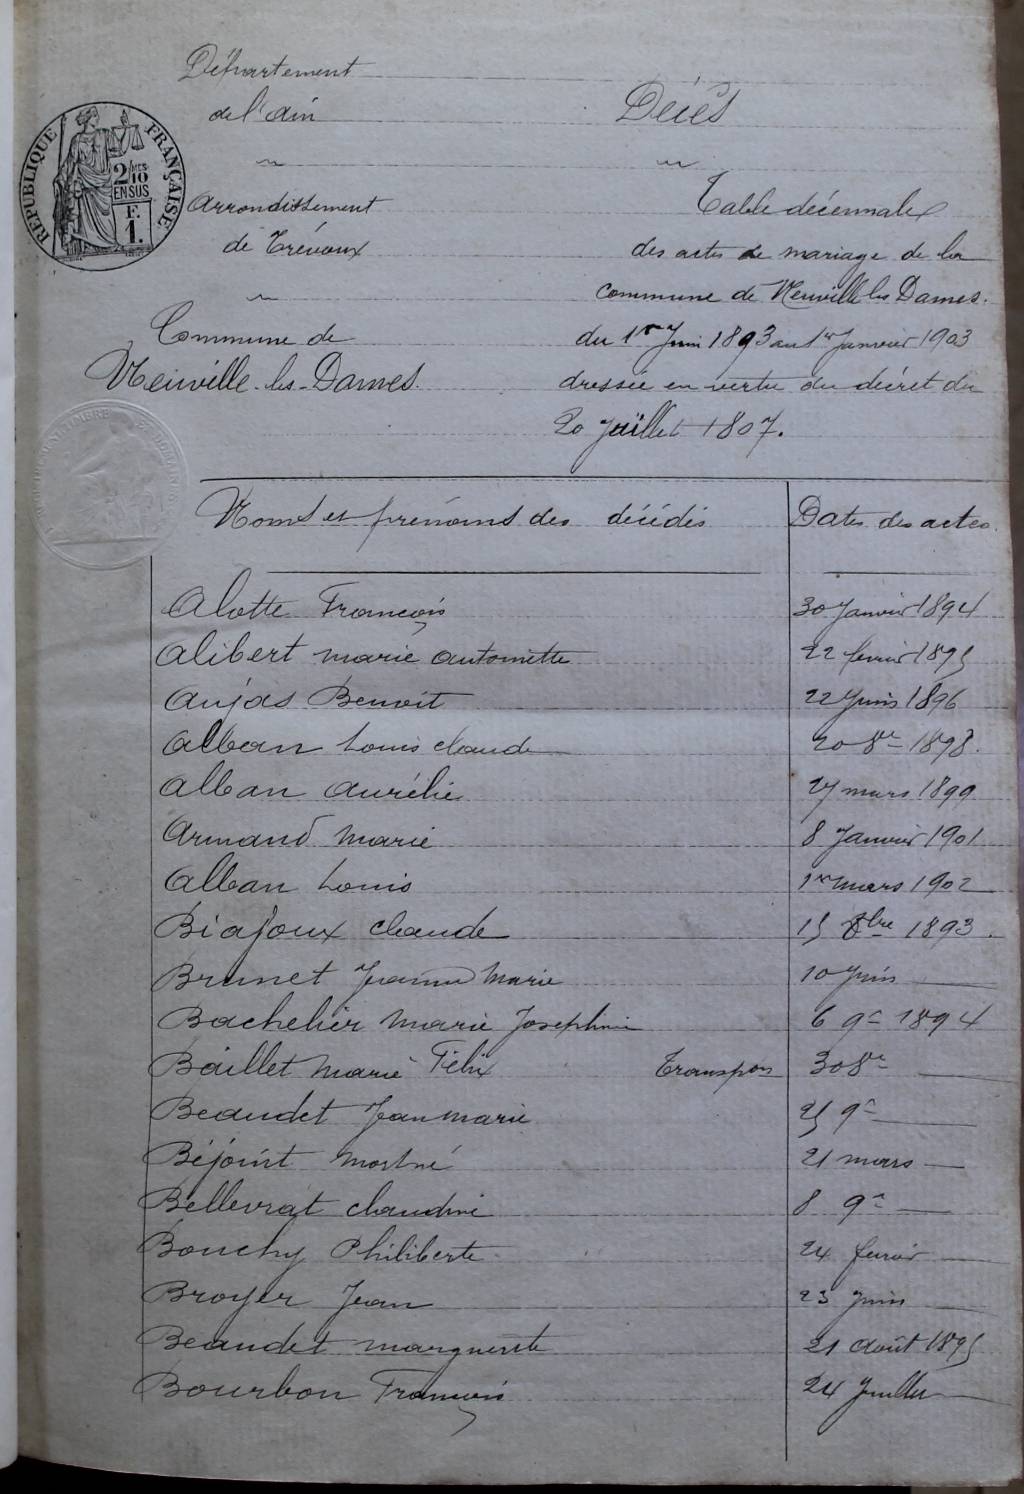 Département
de l'ain
Arrondissement
de Trévoux
Commune de
Neuville-les-Dames
RÉPUBLIQUE FRANÇAISE
2/10 MES
EN SUS
F.
1.
Décès
Table décennale
des actes de mariage de la
commune de Neuville les Dames.
du 1er Juin 1893 au 1er Janvier 1903
dressée en vertu du décret du
20 Juillet 1807.
Noms et prénoms des décédés Dates des actes
Alotte François 30 Janvier 1894
Alibert marie antoinette 22 fevrier 1895
Aujas Benoit 22 Juin 1896
Alban Louis claude 20 8re 1898.
Alban Aurélie 27 mars 1899
Armand Marie 8 Janvier 1901
Alban Louis 1er mars 1902
Biajoux claude 15 8bre 1893.
Brunet Jeanne Marie 10 Juin
Bachelier Marie Josephine 6 9e 1894
Baillet Marie Félix Transpon 30 8re
Beaudet Jean marie 25 9e
Béjoint mort né 21 mars
Bellevrat claudine 8 9e
Bouchy Philiberte 24 fevrier
Broyer Jean 23 Juin
Beaudet marguerite 21 août 1895
Bourbon François 24 Juillet